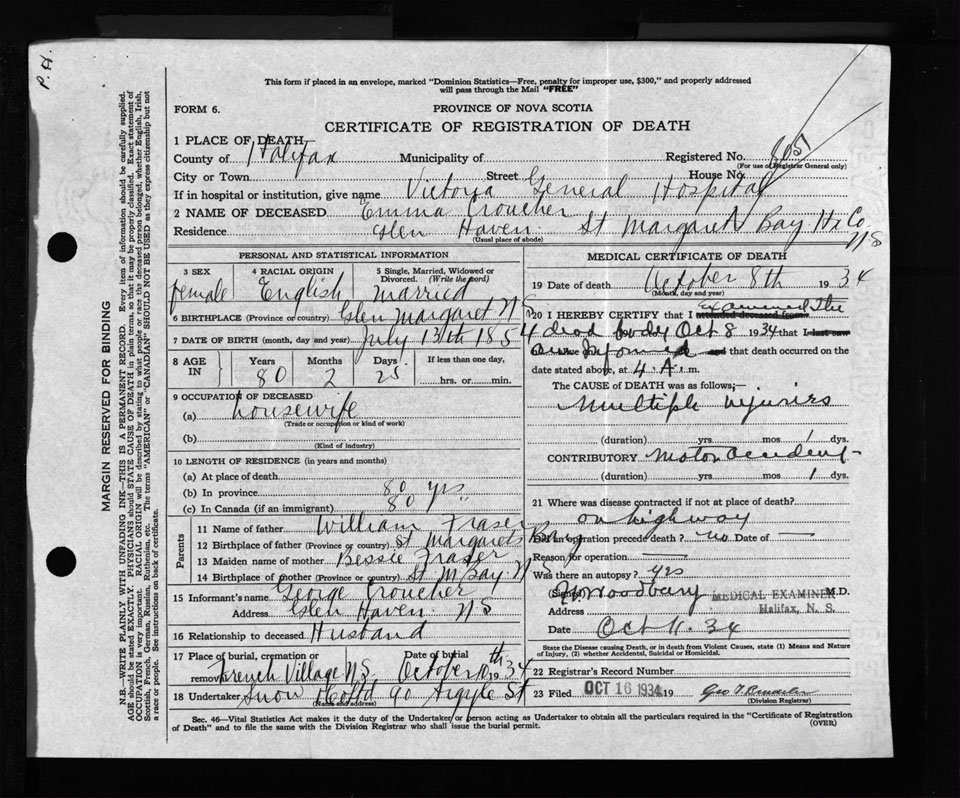 P.H.
This form if placed in an envelope, marked "Dominion Statistics—Free, penalty for improper use, $300," and properly addressed
will pass through the Mail "FREE"
FORM 6.
PROVINCE OF NOVA SCOTIA
CERTIFICATE OF REGISTRATION OF DEATH
1 PLACE OF DEATH
County of Halifax Municipality of Registered No.
(For use of Registrar General only)
City or Town Street House No.
If in hospital or institution, give name Victoria General Hospital
2 NAME OF DECEASED Emma Croucher
Residence Glen Haven St Margarets Bay Hx Co. N S
(Usual place of abode)
PERSONAL AND STATISTICAL INFORMATION
3 SEX 4 RACIAL ORIGIN 5 Single, Married, Widowed or
Divorced. (Write the word)
female English married
6 BIRTHPLACE (Province or country) Glen Margaret N S
7 DATE OF BIRTH (month, day and year) July 13th 1854
8 AGE IN Years Months Days If less than one day,
80 2 25 hrs. or min.
9 OCCUPATION OF DECEASED
(a) housewife
(Trade or occupation or kind of work)
(b)
(Kind of industry)
10 LENGTH OF RESIDENCE (in years and months)
(a) At place of death
(b) In province 80 yrs
(c) In Canada (if an immigrant) 80 "
Parents
11 Name of father William Fraser
12 Birthplace of father (Province or country) St Margarets Bay
13 Maiden name of mother Bessie Fraser
14 Birthplace of mother (Province or country) St M Bay N S
15 Informant's name George Croucher
Address Glen Haven N S
16 Relationship to deceased Husband
17 Place of burial, cremation or Date of burial
removal French Village N.S. October 10th 1934
18 Undertaker Snow & Co Ltd 90 Argyle St
(Name and address)
MEDICAL CERTIFICATE OF DEATH
19 Date of death October 8th 1934
(Month, day and year)
20 I HEREBY CERTIFY that I attended deceased from examined the
dead body Oct 8 1934 that I last saw
am informed and that death occurred on the
date stated above, at 4 A. m.
The CAUSE OF DEATH was as follows;—
Multiple injuries
(duration) yrs mos 1 dys.
CONTRIBUTORY Motor accident
(duration) yrs mos 1 dys.
21 Where was disease contracted if not at place of death?
on highway
Did an operation precede death? no Date of —
Reason for operation —
Was there an autopsy? yes
(Signed) Woodbury M.D.
MEDICAL EXAMINER
Address Halifax, N. S.
Date Oct 11. 34
State the Disease causing Death, or in death from Violent Causes, state (1) Means and Nature
of Injury, (2) whether Accidental, Suicidal or Homicidal.
22 Registrar's Record Number
23 Filed OCT 16 1934 19
(Division Registrar)
Sec. 46—Vital Statistics Act makes it the duty of the Undertaker or person acting as Undertaker to obtain all the particulars required in the "Certificate of Registration
of Death" and to file the same with the Division Registrar who shall issue the burial permit.
(OVER)
MARGIN RESERVED FOR BINDING
N.B.—WRITE PLAINLY WITH UNFADING INK—THIS IS A PERMANENT RECORD. Every item of information should be carefully supplied.
AGE should be stated EXACTLY. PHYSICIANS should STATE CAUSE OF DEATH in plain terms, so that it may be properly classified. Exact statement of
OCCUPATION is very important. RACIAL ORIGIN will be described by stating to what people or race the deceased person belonged, whether English, Irish,
Scottish, French, German, Russian, Ruthenian, etc. The terms "AMERICAN" or "CANADIAN" SHOULD NOT BE USED as they express citizenship but not
a race or people. See instructions on back of certificate.